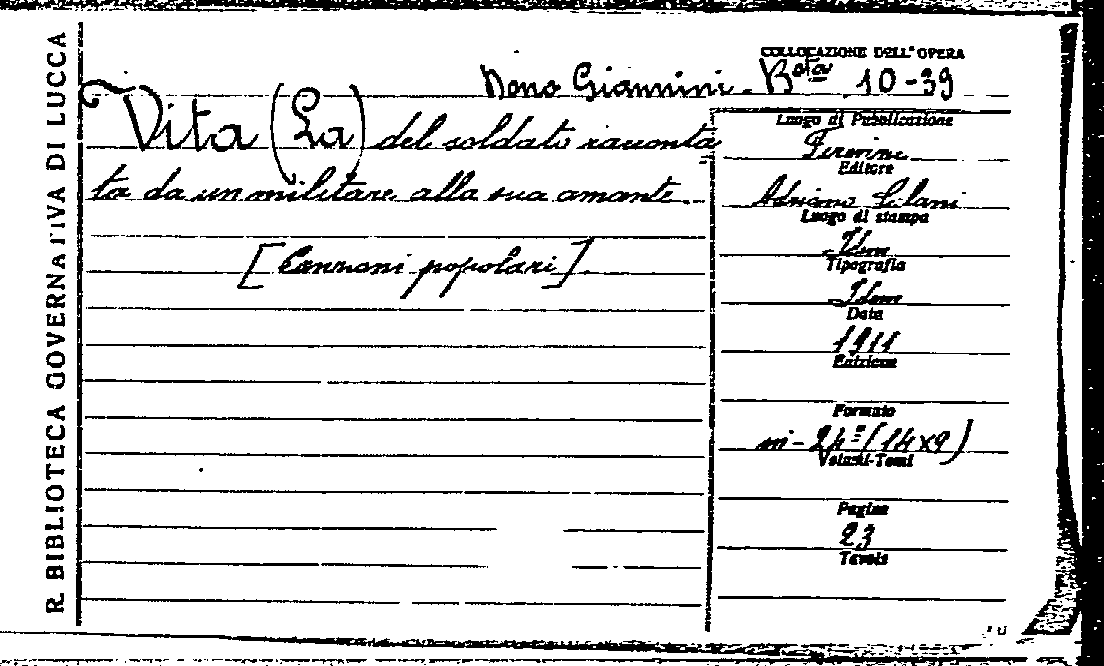 R. BIBLIOTECA GOVERNATIVA DI LUCCA
COLLOCAZIONE DELL'OPERA
Dono Giannini - Bta 10-39
Vita (La) del soldato racconta
ta da un militare alla sua amante.
[Canzoni popolari].
Luogo di Pubblicazione
Firenze
Editore
Adriano Salani
Luogo di stampa
Idem
Tipografia
Idem
Data
1911
Edizione
Formato
in-24º (14x9)
Volumi-Tomi
Pagine
23
Tavole